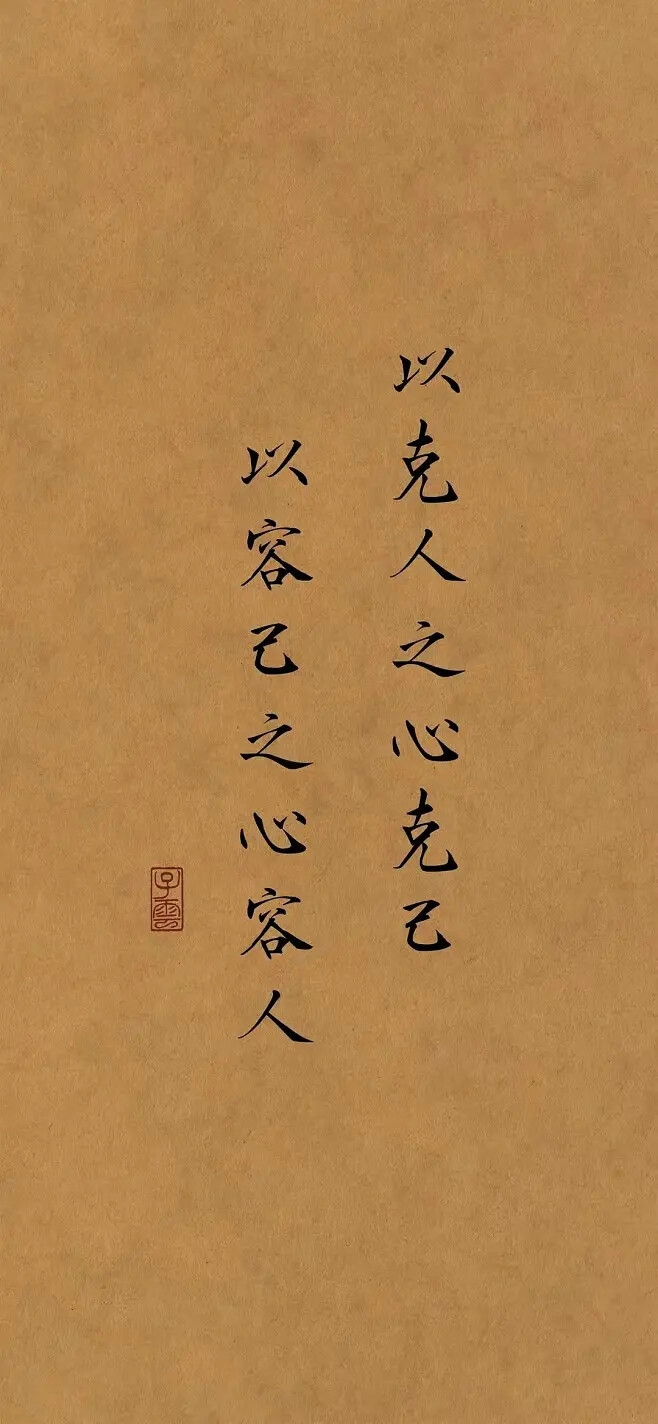 以克人之心克己
以容己之心容人
子雲